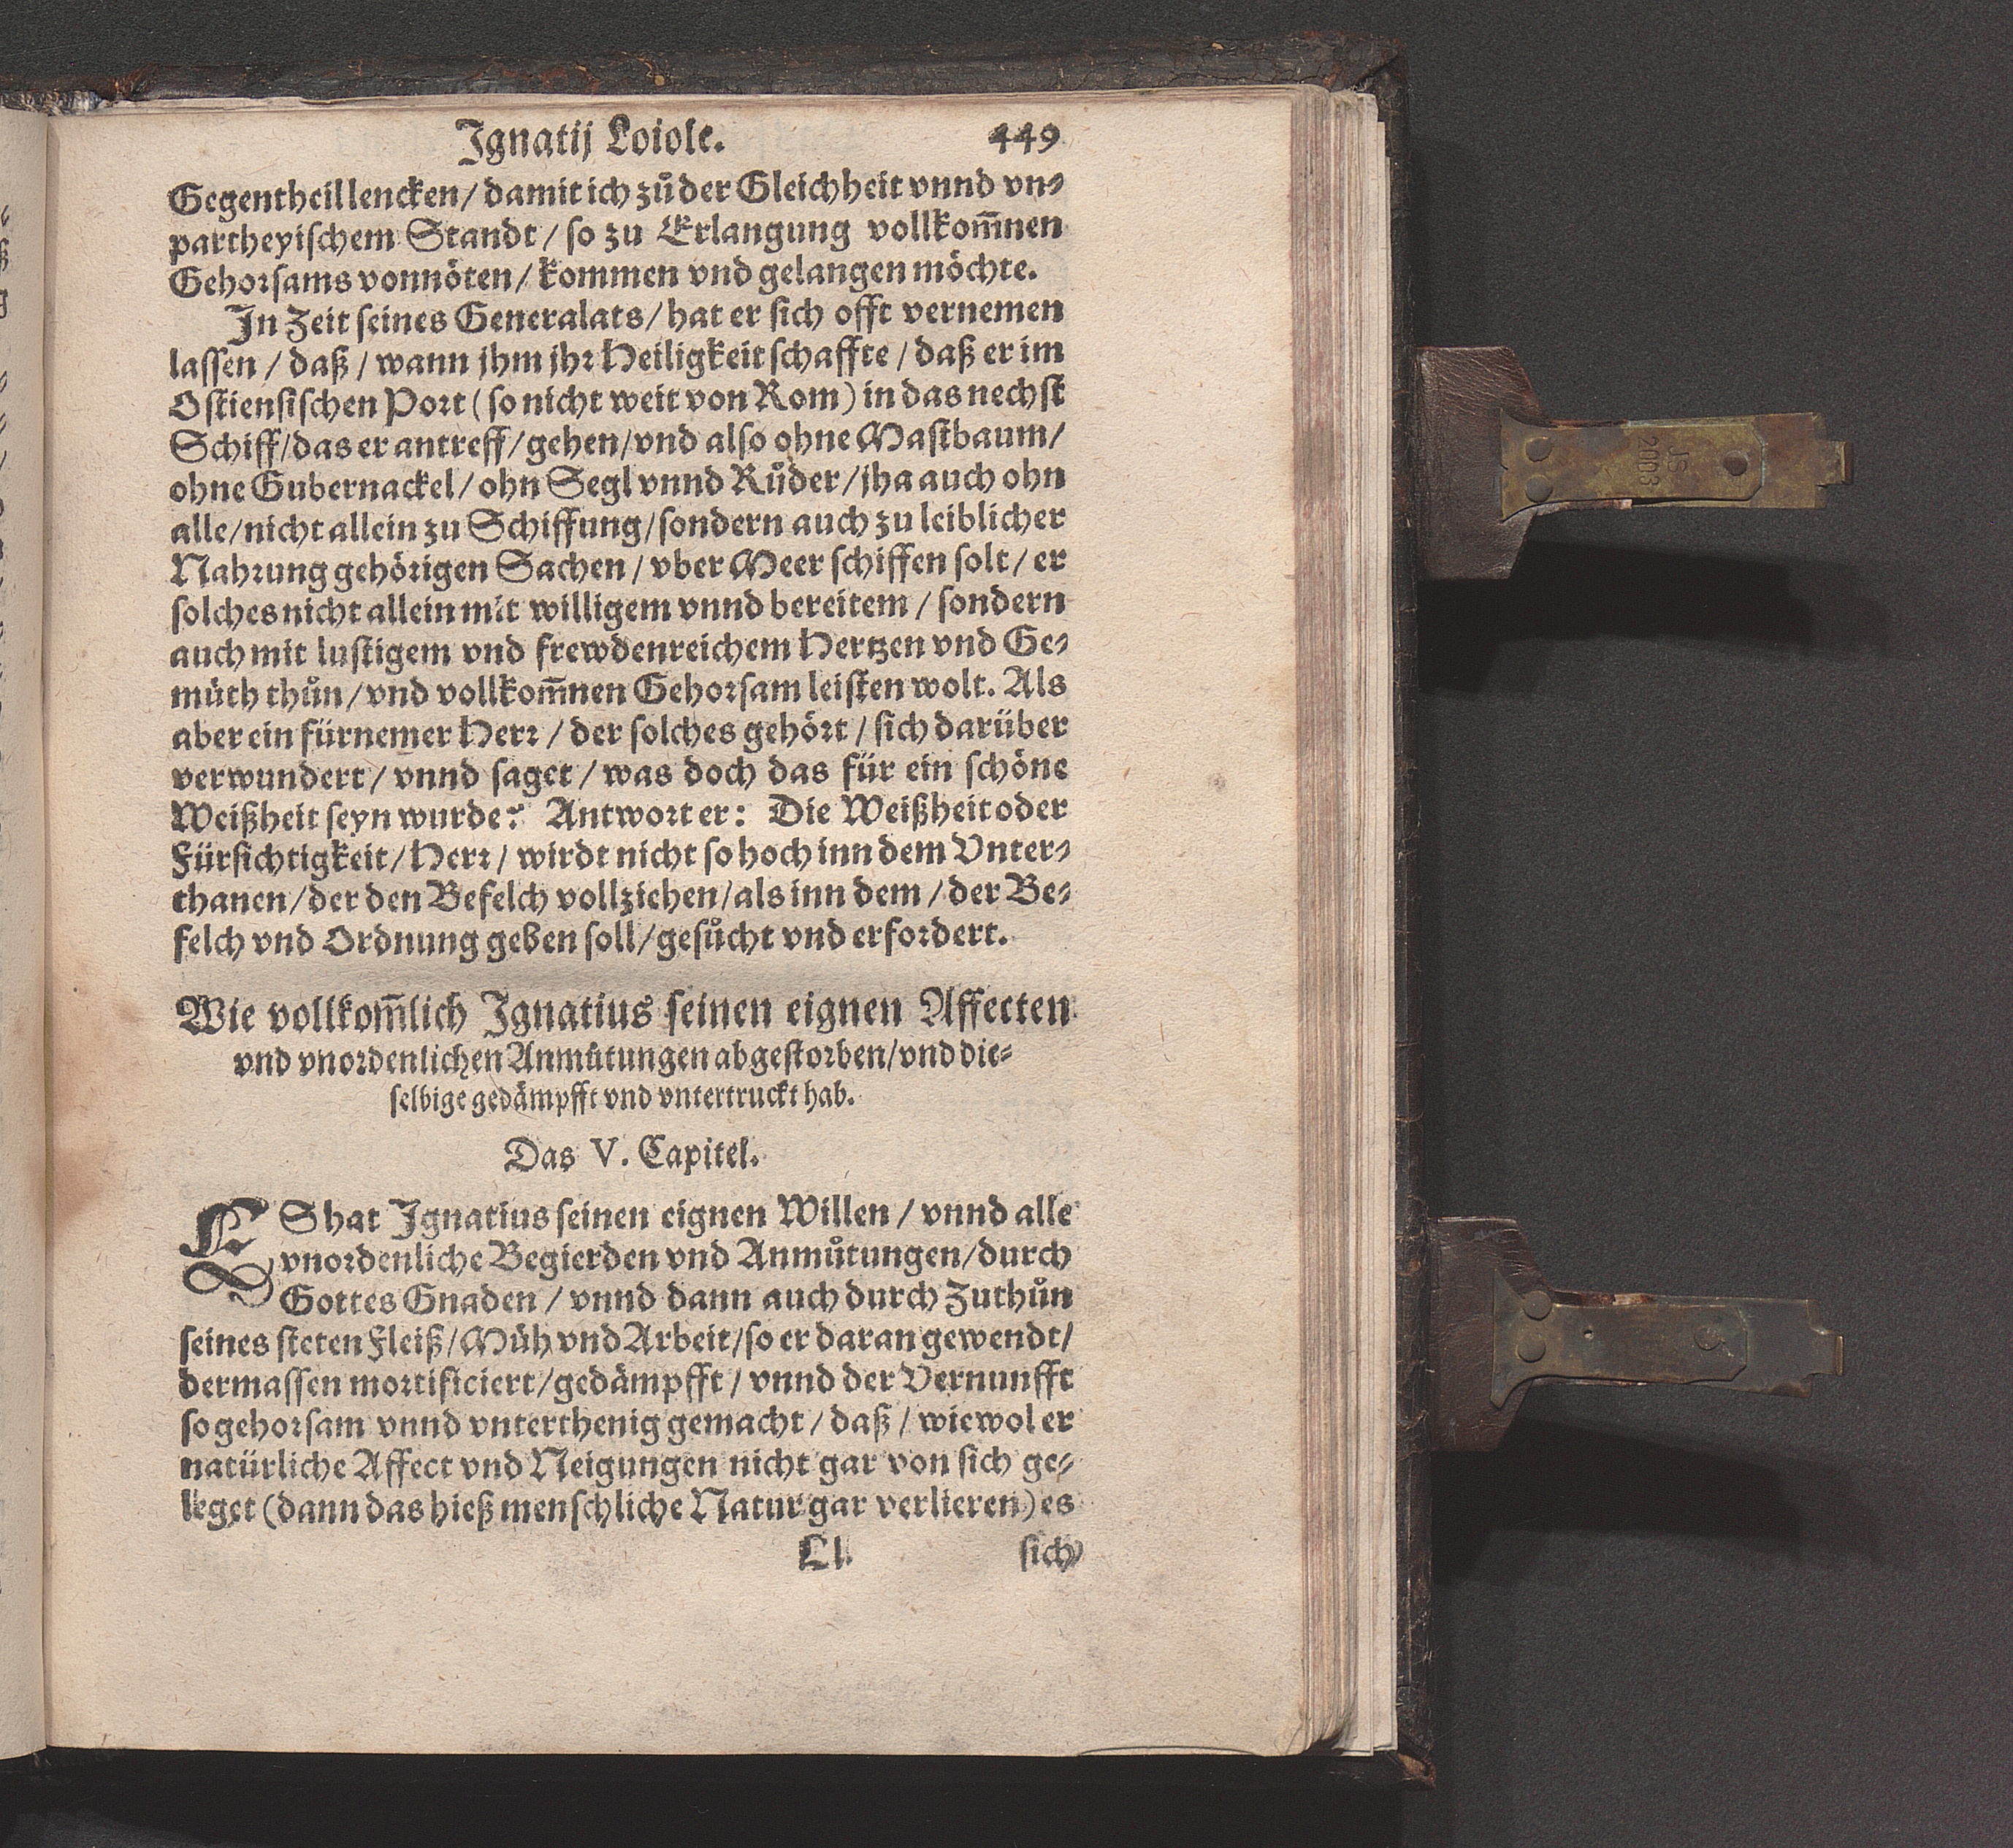 Ignatij Loiole. 449
Gegentheil lencken/ damit ich zuͦ der Gleichheit vnnd vn⸗
partheyischem Standt/ so zu Erlangung vollkom̃nen
Gehorsams vonnöten/ kommen vnd gelangen möchte.
In Zeit seines Generalats/ hat er sich offt vernemen
lassen/ daß/ wann jhm jhr Heiligkeit schaffte/ daß er im
Ostiensischen Port (so nicht weit von Rom) in das nechst
Schiff/ das er antreff/ gehen/ vnd also ohne Mastbaum/
ohne Gubernackel/ ohn Segl vnnd Ruͦder/ jha auch ohn
alle/ nicht allein zu Schiffung/ sondern auch zu leiblicher
Nahrung gehörigen Sachen/ vber Meer schiffen solt/ er
solches nicht allein mit willigem vnnd bereitem/ sondern
auch mit lustigem vnd frewdenreichem Hertzen vnd Ge⸗
müth thuͦn/ vnd vollkom̃nen Gehorsam leisten wolt. Als
aber ein fürnemer Herr/ der solches gehört/ sich darüber
verwundert/ vnnd saget/ was doch das für ein schöne
Weißheit seyn wurde? Antwort er: Die Weißheit oder
Fürsichtigkeit/ Herr/ wirdt nicht so hoch inn dem Vnter⸗
thanen/ der den Befelch vollziehen/ als inn dem/ der Be⸗
felch vnd Ordnung geben soll/ gesuͦcht vnd erfordert.
Wie vollkom̃lich Ignatius seinen eignen Affecten
vnd vnordenlichen Anmütungen abgestorben/ vnd die⸗
selbige gedämpfft vnd vntertruckt hab.
Das V. Capitel.
ES hat Ignatius seinen eignen Willen/ vnnd alle
vnordenliche Begierden vnd Anmuͦtungen/ durch
Gottes Gnaden/ vnnd dann auch durch Zuthuͦn
seines steten Fleiß/ Müh vnd Arbeit/ so er daran gewendt/
dermassen mortificiert/ gedämpfft/ vnnd der Vernunfft
so gehorsam vnnd vnterthenig gemacht/ daß/ wiewol er
natürliche Affect vnd Neigungen nicht gar von sich ge⸗
leget (dann das hieß menschliche Natur gar verlieren) es
Ll sich
JS
2003